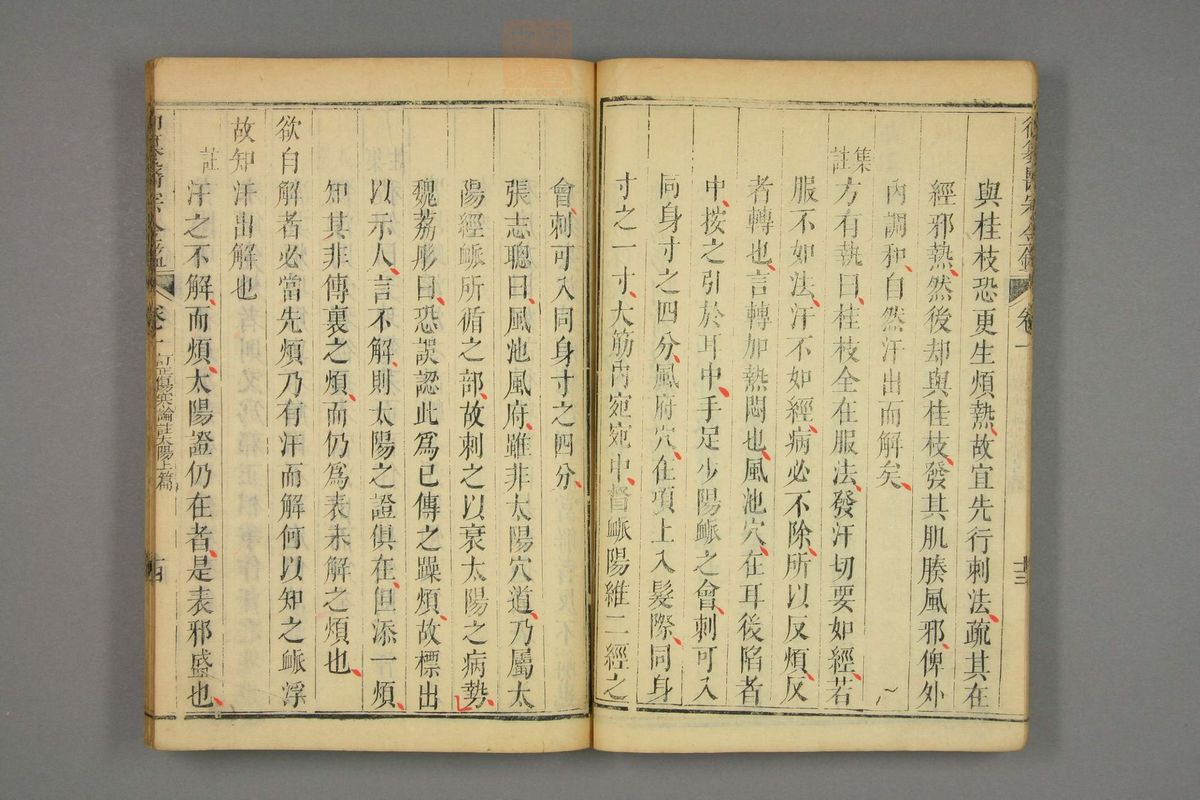 與桂枝恐更生煩熱故宜先行刺法疏其在
經邪熱然後却與桂枝發其肌腠風邪俾外
內調和自然汗出而解矣
集註
方有執曰桂枝全在服法發汗切要如經若
服不如法汗不如經病必不除所以反煩反
者轉也言轉加熱悶也風池穴在耳後陷者
中按之引於耳中手足少陽脈之會刺可入
同身寸之四分風府穴在項上入髮際同身
寸之一寸大筋內宛宛中督脈陽維二經之
御纂醫宗金鑑
卷一
十三
會刺可入同身寸之四分
張志聰曰風池風府雖非太陽穴道乃屬太
陽經脈所循之部故刺之以衰太陽之病勢
魏荔彤曰恐誤認此爲已傳之躁煩故標出
以示人言不解則太陽之證俱在但添一煩
知其非傳裏之煩而仍爲表未解之煩也
欲自解者必當先煩乃有汗而解何以知之脈浮
故知汗出解也
註
汗之不解而煩太陽證仍在者是表邪盛也
御纂醫宗金鑑
卷一
訂正傷寒論註太陽上篇
十四